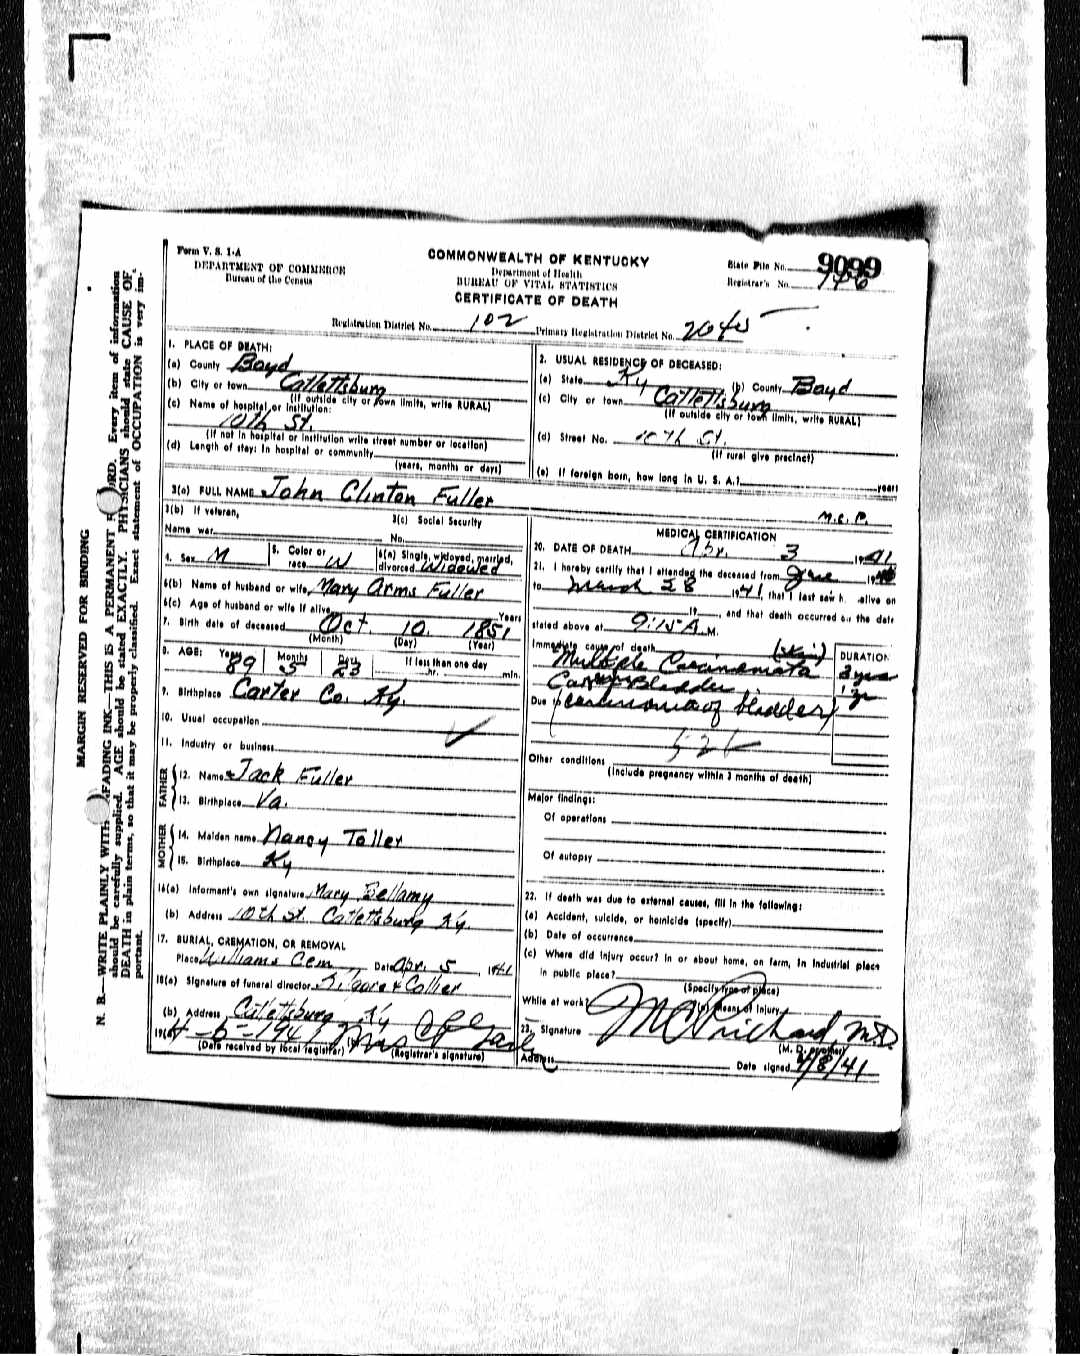 Form V. S. 1-A
DEPARTMENT OF COMMERCE
Bureau of the Census
COMMONWEALTH OF KENTUCKY
Department of Health
BUREAU OF VITAL STATISTICS
CERTIFICATE OF DEATH
State File No. 9099
Registrar's No. 146
Registration District No. 102 Primary Registration District No. 2040
MARGIN RESERVED FOR BINDING
N. B.—WRITE PLAINLY WITH FADING INK—THIS IS A PERMANENT RECORD. Every item of information
should be carefully supplied. AGE should be stated EXACTLY. PHYSICIANS should state CAUSE OF
DEATH in plain terms, so that it may be properly classified. Exact statement of OCCUPATION is very im-
portant.
1. PLACE OF DEATH:
(a) County Boyd
(b) City or town Catlettsburg
(If outside city or town limits, write RURAL)
(c) Name of hospital or institution:
10th St.
(If not in hospital or institution write street number or location)
(d) Length of stay: In hospital or community
(years, months or days)
2. USUAL RESIDENCE OF DECEASED:
(a) State Ky (b) County Boyd
(c) City or town Catlettsburg
(If outside city or town limits, write RURAL)
(d) Street No. 10th St.
(If rural give precinct)
(e) If foreign born, how long in U. S. A.? years
3(a) FULL NAME John Clinton Fuller
3(b) If veteran,
Name war
3(c) Social Security
No.
4. Sex M
5. Color or race W
6(a) Single, widowed, married, divorced Widowed
6(b) Name of husband or wife Mary Arms Fuller
6(c) Age of husband or wife if alive Years
7. Birth date of deceased Oct. 10. 1851
(Month) (Day) (Year)
8. AGE: Years 89 Months 5 Days 23 If less than one day
hr. min.
9. Birthplace Carter Co. Ky.
10. Usual occupation
11. Industry or business
FATHER
12. Name Jack Fuller
13. Birthplace Va.
MOTHER
14. Maiden name Nancy Toller
15. Birthplace Ky
16(a) Informant's own signature Mary Bellamy
(b) Address 10th St. Catlettsburg Ky.
17. BURIAL, CREMATION, OR REMOVAL
Place Williams Cem Date Apr. 5 1941
18(a) Signature of funeral director Kilgore & Collier
(b) Address Catlettsburg Ky
19(a) 4-5-1941 (b) Mrs
(Date received by local registrar) (Registrar's signature)
M.C.P.
MEDICAL CERTIFICATION
20. DATE OF DEATH Apr. 3 1941
21. I hereby certify that I attended the deceased from June 1940
to March 28 1941, that I last saw h alive on
19 , and that death occurred on the date
stated above at 9:15 A. M.
Immediate cause of death (skin) DURATION
Multiple Carcinomata 3 yrs
Bladder 1 yr
Due to (carcinoma of bladder)
52
Other conditions
(Include pregnancy within 3 months of death)
Major findings:
Of operations
Of autopsy
22. If death was due to external causes, fill in the following:
(a) Accident, suicide, or homicide (specify)
(b) Date of occurrence
(c) Where did injury occur? In or about home, on farm, in industrial place
in public place?
(Specify type of place)
While at work? (e) Means of injury
23. Signature M C Prichard, M.D.
(M. D. or other)
Address Date signed 4/8/41